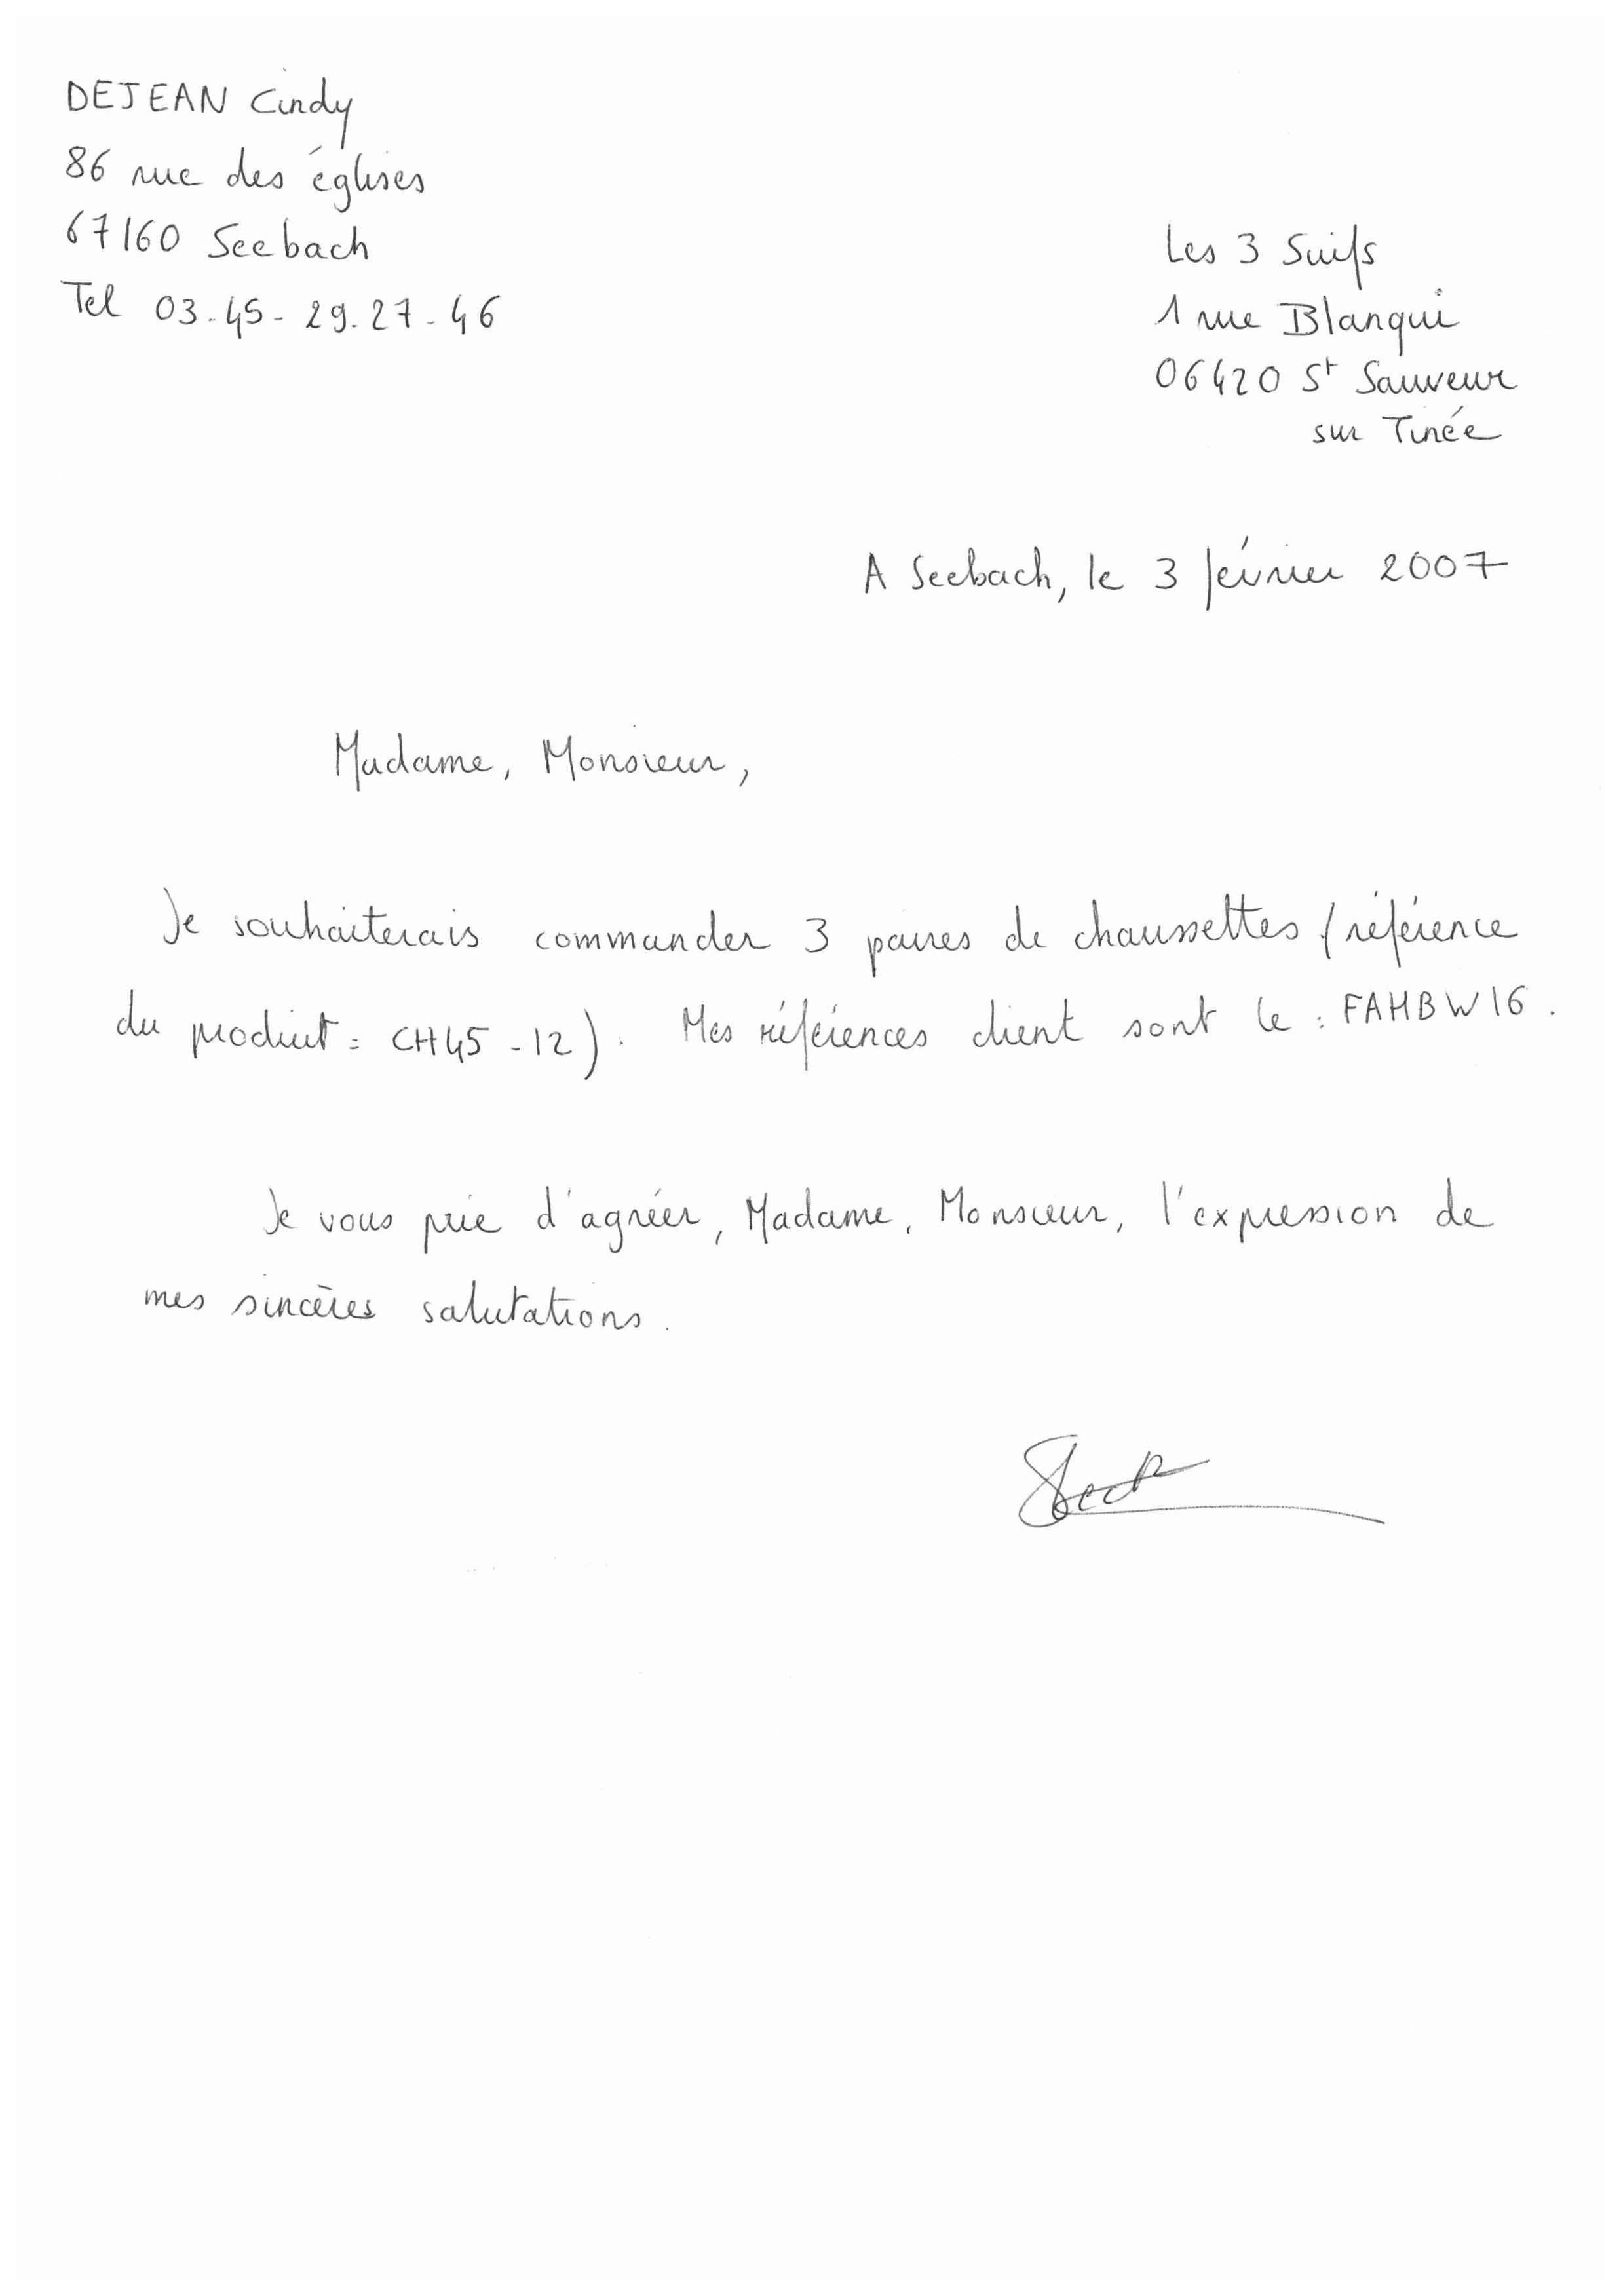 DEJEAN Cindy
86 rue des églises
67160 Seebach
Tel 03-45-29.27-46
Les 3 Suifs
1 rue Blanqui
06420 St Sauveur
sur Tinée
A Seebach, le 3 février 2007
Madame, Monsieur,
Je souhaiterais commander 3 paires de chaussettes (référence
du produit : CH45-12). Mes références client sont le : FAHBW16.
Je vous prie d'agréer, Madame, Monsieur, l'expression de
mes sincères salutations.